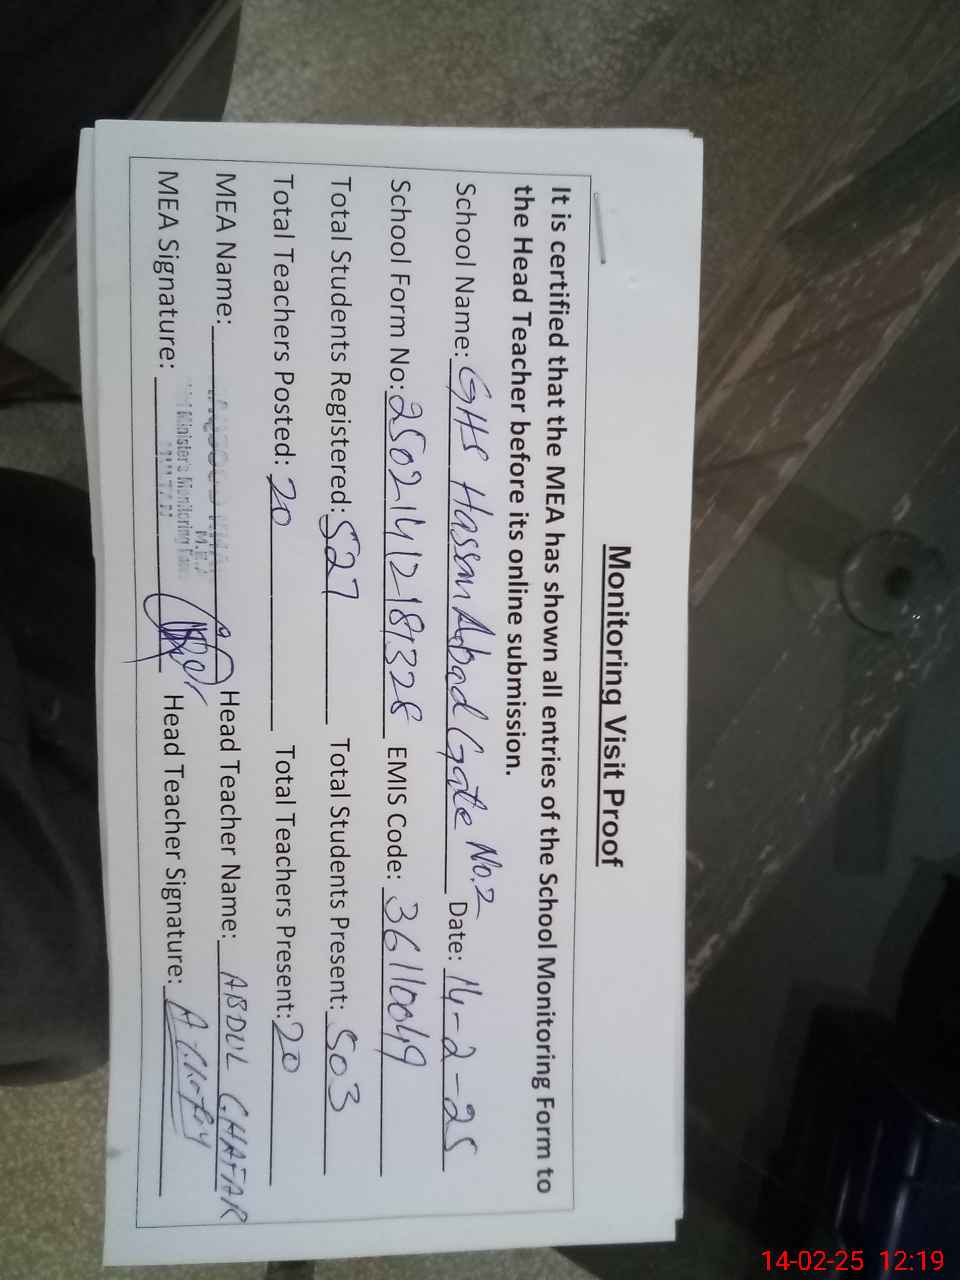 Monitoring Visit Proof
It is certified that the MEA has shown all entries of the School Monitoring Form to
the Head Teacher before its online submission.
School Name: GHS Hassan Abad Gate No.2 Date: 14-2-25
School Form No: 2502141218328 EMIS Code: 36110049
Total Students Registered: 527 Total Students Present: 503
Total Teachers Posted: 20 Total Teachers Present: 20
MEA Name: Head Teacher Name: ABDUL GHAFAR
Minister's Monitoring Force
MEA Signature: Head Teacher Signature:
14-02-25 12:19